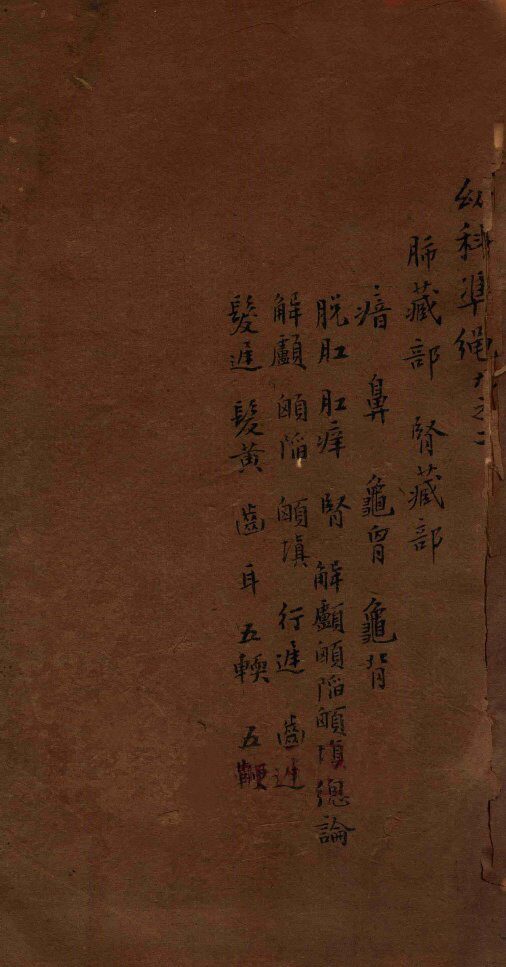 幼科準繩九之二
肺藏部 腎藏部
瘖 鼻 龜胷 龜背
脱肛 肛痒 腎 解顱顖陷顖填總論
解顱 顖陷 顖填 行遲 齒遲
髮遲 髮黃 齒 耳 五輭 五鞕